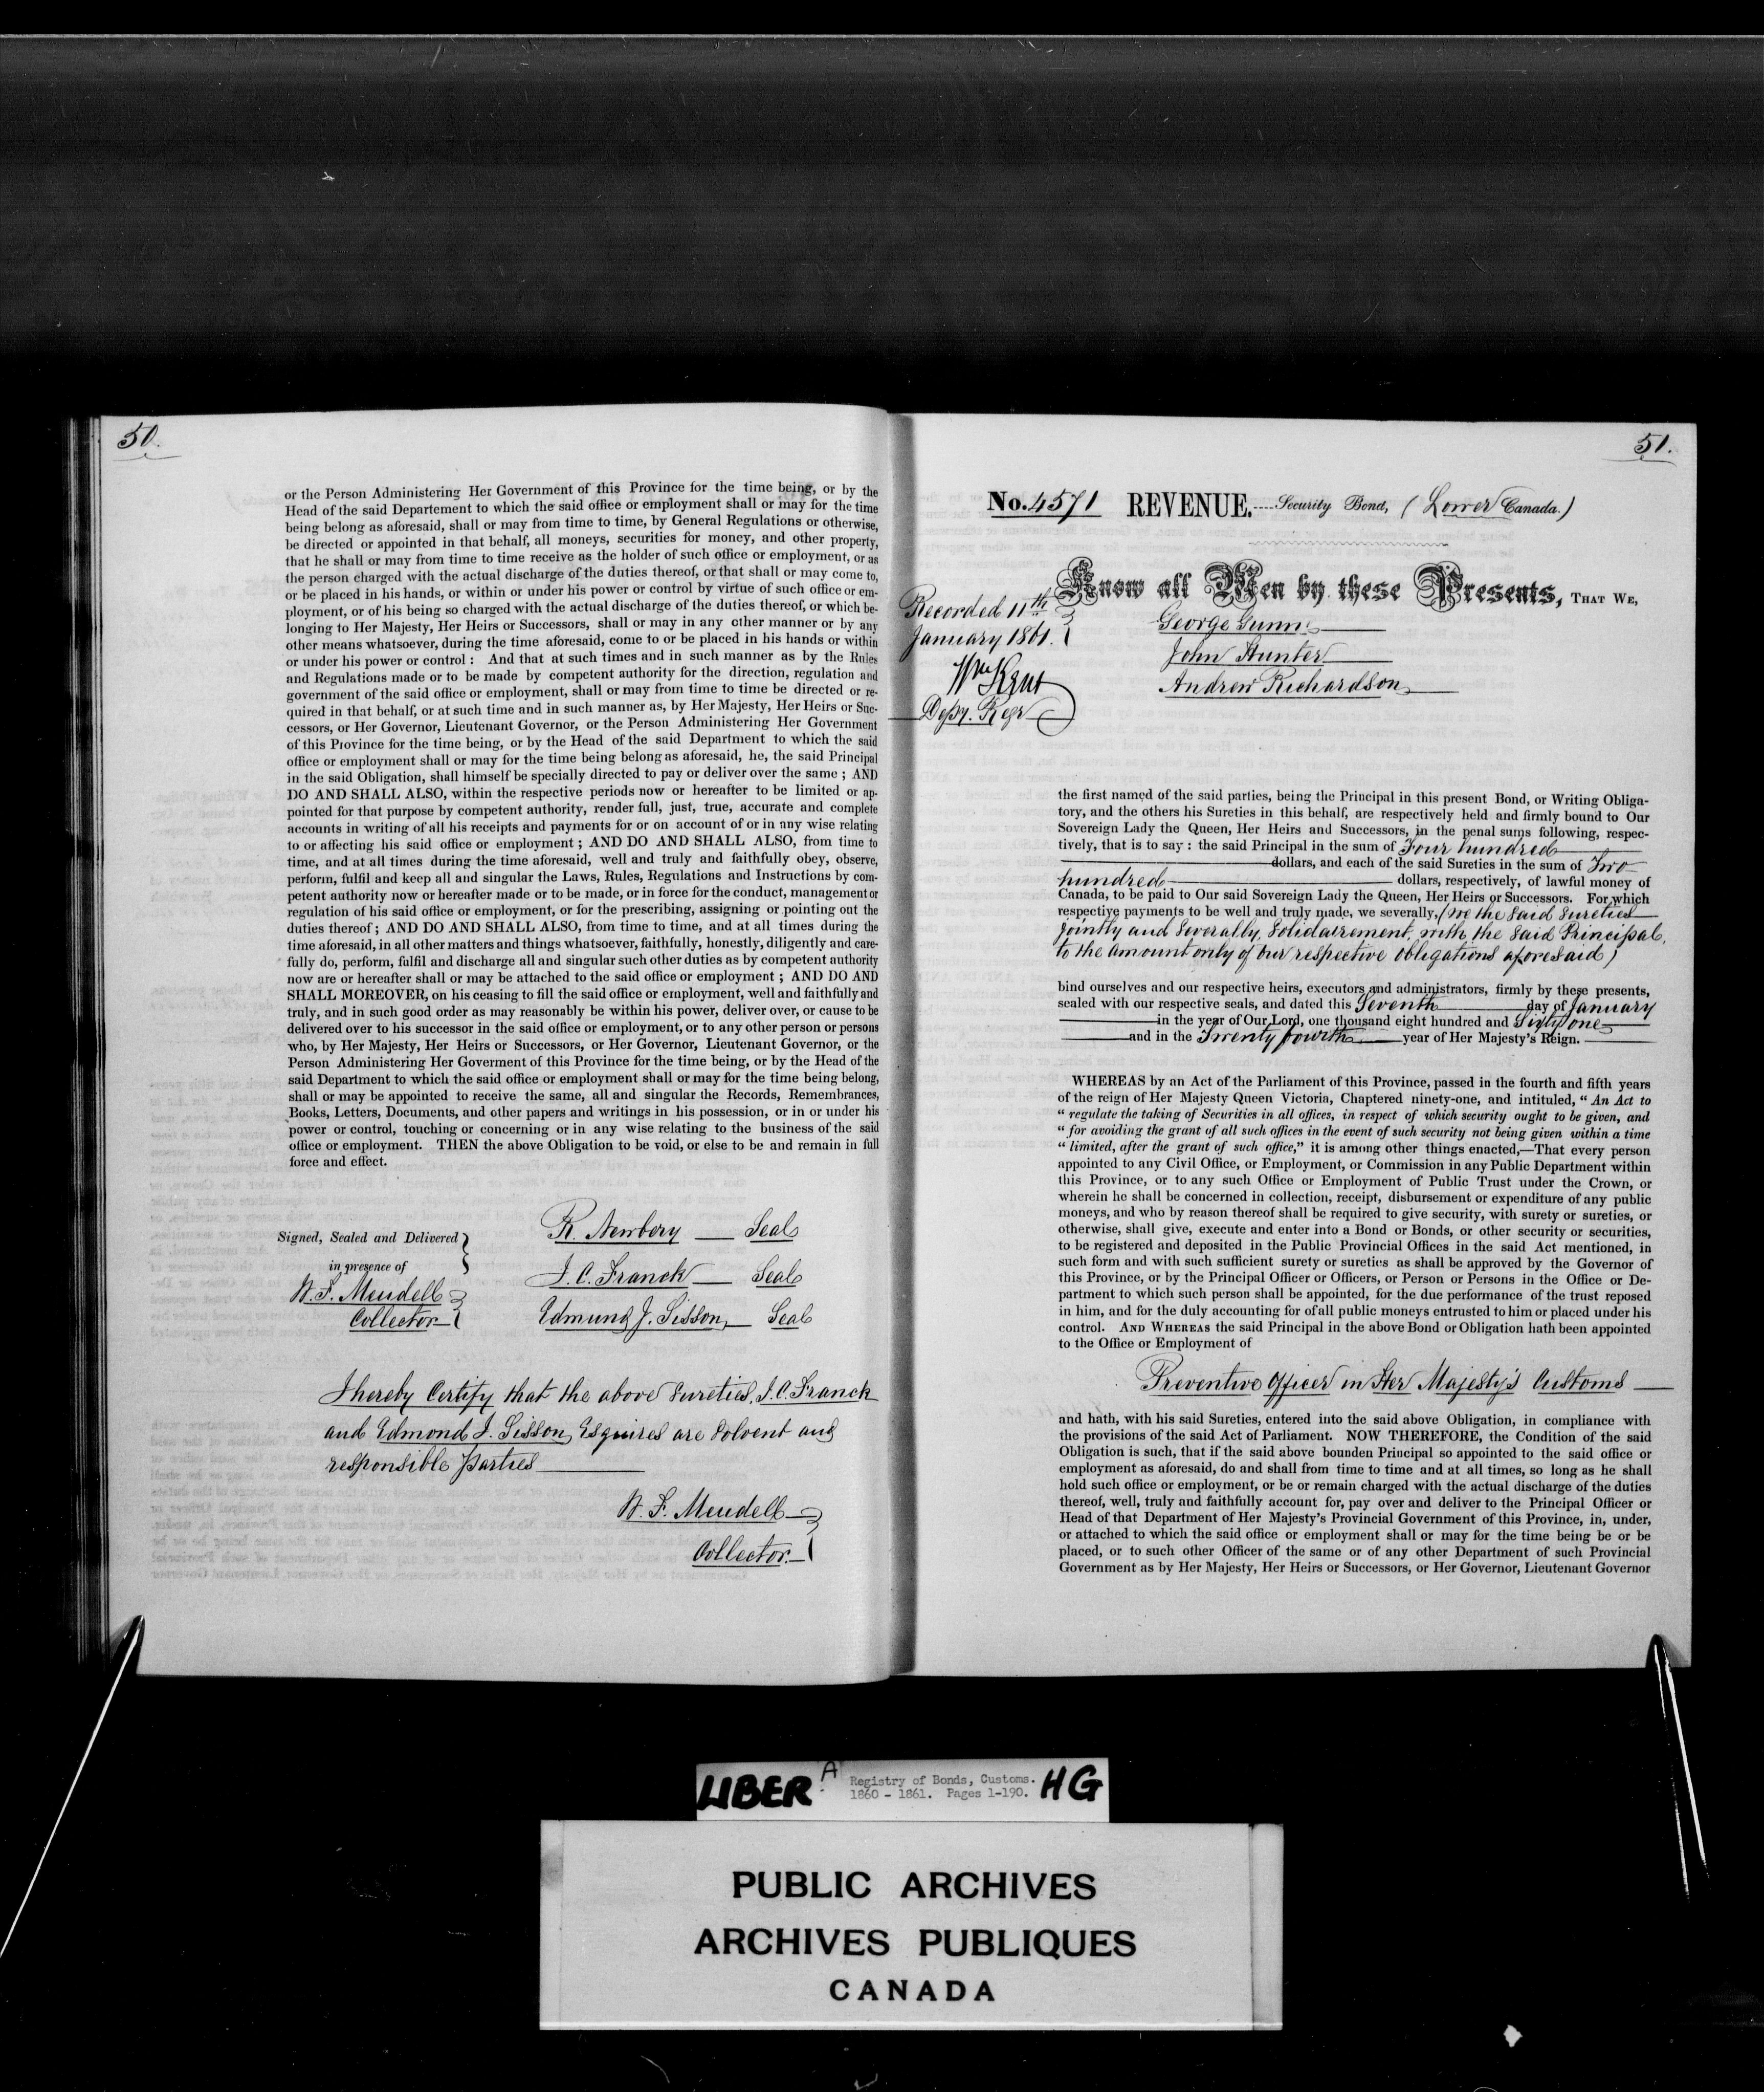 50.
or the Person Administering Her Government of this Province for the time being, or by the
Head of the said Departement to which the said office or employment shall or may for the time
being belong as aforesaid, shall or may from time to time, by General Regulations or otherwise,
be directed or appointed in that behalf, all moneys, securities for money, and other property,
that he shall or may from time to time receive as the holder of such office or employment, or as
the person charged with the actual discharge of the duties thereof, or that shall or may come to,
or be placed in his hands, or within or under his power or control by virtue of such office or em-
ployment, or of his being so charged with the actual discharge of the duties thereof, or which be-
longing to Her Majesty, Her Heirs or Successors, shall or may in any other manner or by any
other means whatsoever, during the time aforesaid, come to or be placed in his hands or within
or under his power or control : And that at such times and in such manner as by the Rules
and Regulations made or to be made by competent authority for the direction, regulation and
government of the said office or employment, shall or may from time to time be directed or re-
quired in that behalf, or at such time and in such manner as, by Her Majesty, Her Heirs or Suc-
cessors, or Her Governor, Lieutenant Governor, or the Person Administering Her Government
of this Province for the time being, or by the Head of the said Department to which the said
office or employment shall or may for the time being belong as aforesaid, he, the said Principal
in the said Obligation, shall himself be specially directed to pay or deliver over the same ; AND
DO AND SHALL ALSO, within the respective periods now or hereafter to be limited or ap-
pointed for that purpose by competent authority, render full, just, true, accurate and complete
accounts in writing of all his receipts and payments for or on account of or in any wise relating
to or affecting his said office or employment ; AND DO AND SHALL ALSO, from time to
time, and at all times during the time aforesaid, well and truly and faithfully obey, observe,
perform, fulfil and keep all and singular the Laws, Rules, Regulations and Instructions by com-
petent authority now or hereafter made or to be made, or in force for the conduct, management or
regulation of his said office or employment, or for the prescribing, assigning or pointing out the
duties thereof ; AND DO AND SHALL ALSO, from time to time, and at all times during the
time aforesaid, in all other matters and things whatsoever, faithfully, honestly, diligently and care-
fully do, perform, fulfil and discharge all and singular such other duties as by competent authority
now are or hereafter shall or may be attached to the said office or employment ; AND DO AND
SHALL MOREOVER, on his ceasing to fill the said office or employment, well and faithfully and
truly, and in such good order as may reasonably be within his power, deliver over, or cause to be
delivered over to his successor in the said office or employment, or to any other person or persons
who, by Her Majesty, Her Heirs or Successors, or Her Governor, Lieutenant Governor, or the
Person Administering Her Goverment of this Province for the time being, or by the Head of the
said Department to which the said office or employment shall or may for the time being belong,
shall or may be appointed to receive the same, all and singular the Records, Remembrances,
Books, Letters, Documents, and other papers and writings in his possession, or in or under his
power or control, touching or concerning or in any wise relating to the business of the said
office or employment. THEN the above Obligation to be void, or else to be and remain in full
force and effect.
Signed, Sealed and Delivered
in presence of
W. F. Mendell
Collector
R. Newbery — Seal
J. C. Franck — Seal
Edmund J. Sisson, — Seal
I hereby Certify that the above Sureties, J. C. Franck
and Edmond J. Sisson, Esquires are Solvent and
responsible Parties
W. F. Mendell
Collector.
51.
No. 4571 REVENUE.----Security Bond, (Lower Canada.)
Know all Men by these Presents, THAT WE,
Recorded 11th
January 1861.
Wm Kent
Depy. Regr
George Gunn
John Hunter
Andrew Richardson
the first named of the said parties, being the Principal in this present Bond, or Writing Obliga-
tory, and the others his Sureties in this behalf, are respectively held and firmly bound to Our
Sovereign Lady the Queen, Her Heirs and Successors, in the penal sums following, respec-
tively, that is to say : the said Principal in the sum of Four hundred
dollars, and each of the said Sureties in the sum of Two
hundred dollars, respectively, of lawful money of
Canada, to be paid to Our said Sovereign Lady the Queen, Her Heirs or Successors. For which
respective payments to be well and truly made, we severally, (we the said Sureties
jointly and severally, Solidairement, with the said Principal,
to the amount only of our respective obligations aforesaid)
bind ourselves and our respective heirs, executors and administrators, firmly by these presents,
sealed with our respective seals, and dated this Seventh day of January
in the year of Our Lord, one thousand eight hundred and Sixty one
and in the Twenty fourth year of Her Majesty's Reign.
WHEREAS by an Act of the Parliament of this Province, passed in the fourth and fifth years
of the reign of Her Majesty Queen Victoria, Chaptered ninety-one, and intituled, “ An Act to
“ regulate the taking of Securities in all offices, in respect of which security ought to be given, and
“ for avoiding the grant of all such offices in the event of such security not being given within a time
“ limited, after the grant of such office,” it is among other things enacted,—That every person
appointed to any Civil Office, or Employment, or Commission in any Public Department within
this Province, or to any such Office or Employment of Public Trust under the Crown, or
wherein he shall be concerned in collection, receipt, disbursement or expenditure of any public
moneys, and who by reason thereof shall be required to give security, with surety or sureties, or
otherwise, shall give, execute and enter into a Bond or Bonds, or other security or securities,
to be registered and deposited in the Public Provincial Offices in the said Act mentioned, in
such form and with such sufficient surety or sureties as shall be approved by the Governor of
this Province, or by the Principal Officer or Officers, or Person or Persons in the Office or De-
partment to which such person shall be appointed, for the due performance of the trust reposed
in him, and for the duly accounting for of all public moneys entrusted to him or placed under his
control. AND WHEREAS the said Principal in the above Bond or Obligation hath been appointed
to the Office or Employment of
Preventive Officer in Her Majesty's Customs
and hath, with his said Sureties, entered into the said above Obligation, in compliance with
the provisions of the said Act of Parliament. NOW THEREFORE, the Condition of the said
Obligation is such, that if the said above bounden Principal so appointed to the said office or
employment as aforesaid, do and shall from time to time and at all times, so long as he shall
hold such office or employment, or be or remain charged with the actual discharge of the duties
thereof, well, truly and faithfully account for, pay over and deliver to the Principal Officer or
Head of that Department of Her Majesty's Provincial Government of this Province, in, under,
or attached to which the said office or employment shall or may for the time being be or be
placed, or to such other Officer of the same or of any other Department of such Provincial
Government as by Her Majesty, Her Heirs or Successors, or Her Governor, Lieutenant Governor
LIBER A Registry of Bonds, Customs. HG
1860 - 1861. Pages 1-190.
PUBLIC ARCHIVES
ARCHIVES PUBLIQUES
CANADA